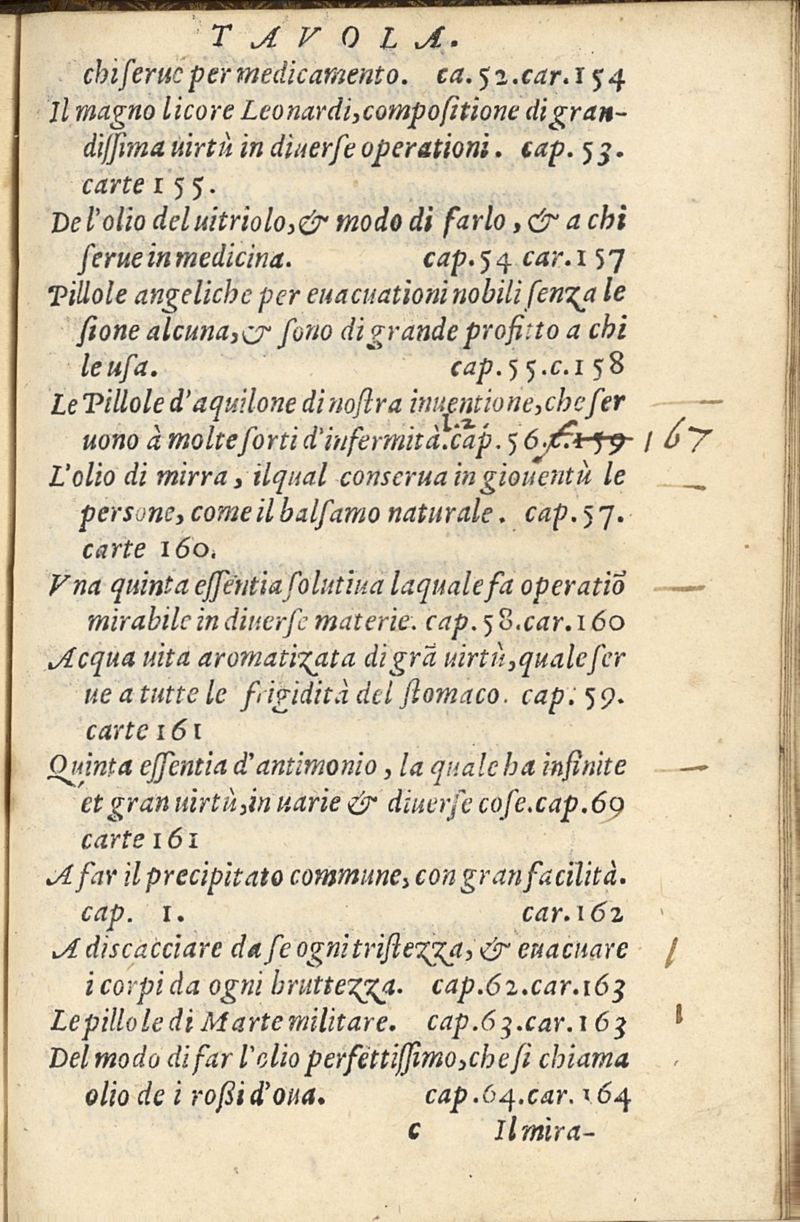 TAVOLA.
chi serue per medicamento. ca. 52. car. 154
Il magno licore Leonardi, compositione di gran-
dissima uirtù in diuerse operationi. cap. 53.
carte 155.
De l'olio del uitriolo, & modo di farlo, & a chi
serue in medicina. cap. 54 car. 157
Pillole angeliche per euacuationi nobili senza le
sione alcuna, & sono di grande profitto a chi
le usa. cap. 55. c. 158
Le Pillole d'aquilone di nostra inuentione, che ser
uono à molte sorti d'infermità. l. 2. cap. 56. c. 159 167
L'olio di mirra, ilqual conserua in giouentù le
persone, come il balsamo naturale. cap. 57.
carte 160.
Vna quinta essentia solutiua laquale fa operatiõ
mirabile in diuerse materie. cap. 58. car. 160
Acqua uita aromatizata di grã uirtù, quale ser
ue a tutte le frigidità del stomaco. cap. 59.
carte 161
Quinta essentia d'antimonio, la quale ha infinite
et gran uirtù, in uarie & diuerse cose. cap. 69
carte 161
A far il precipitato commune, con gran facilità.
cap. 1. car. 162
A discacciare da se ogni tristezza, & euacuare
i corpi da ogni bruttezza. cap. 62. car. 163
Le pillole di Marte militare. cap. 63. car. 163
Del modo di far l'olio perfettissimo, che si chiama
olio de i roßi d'oua. cap. 64. car. 164
c Il mira-